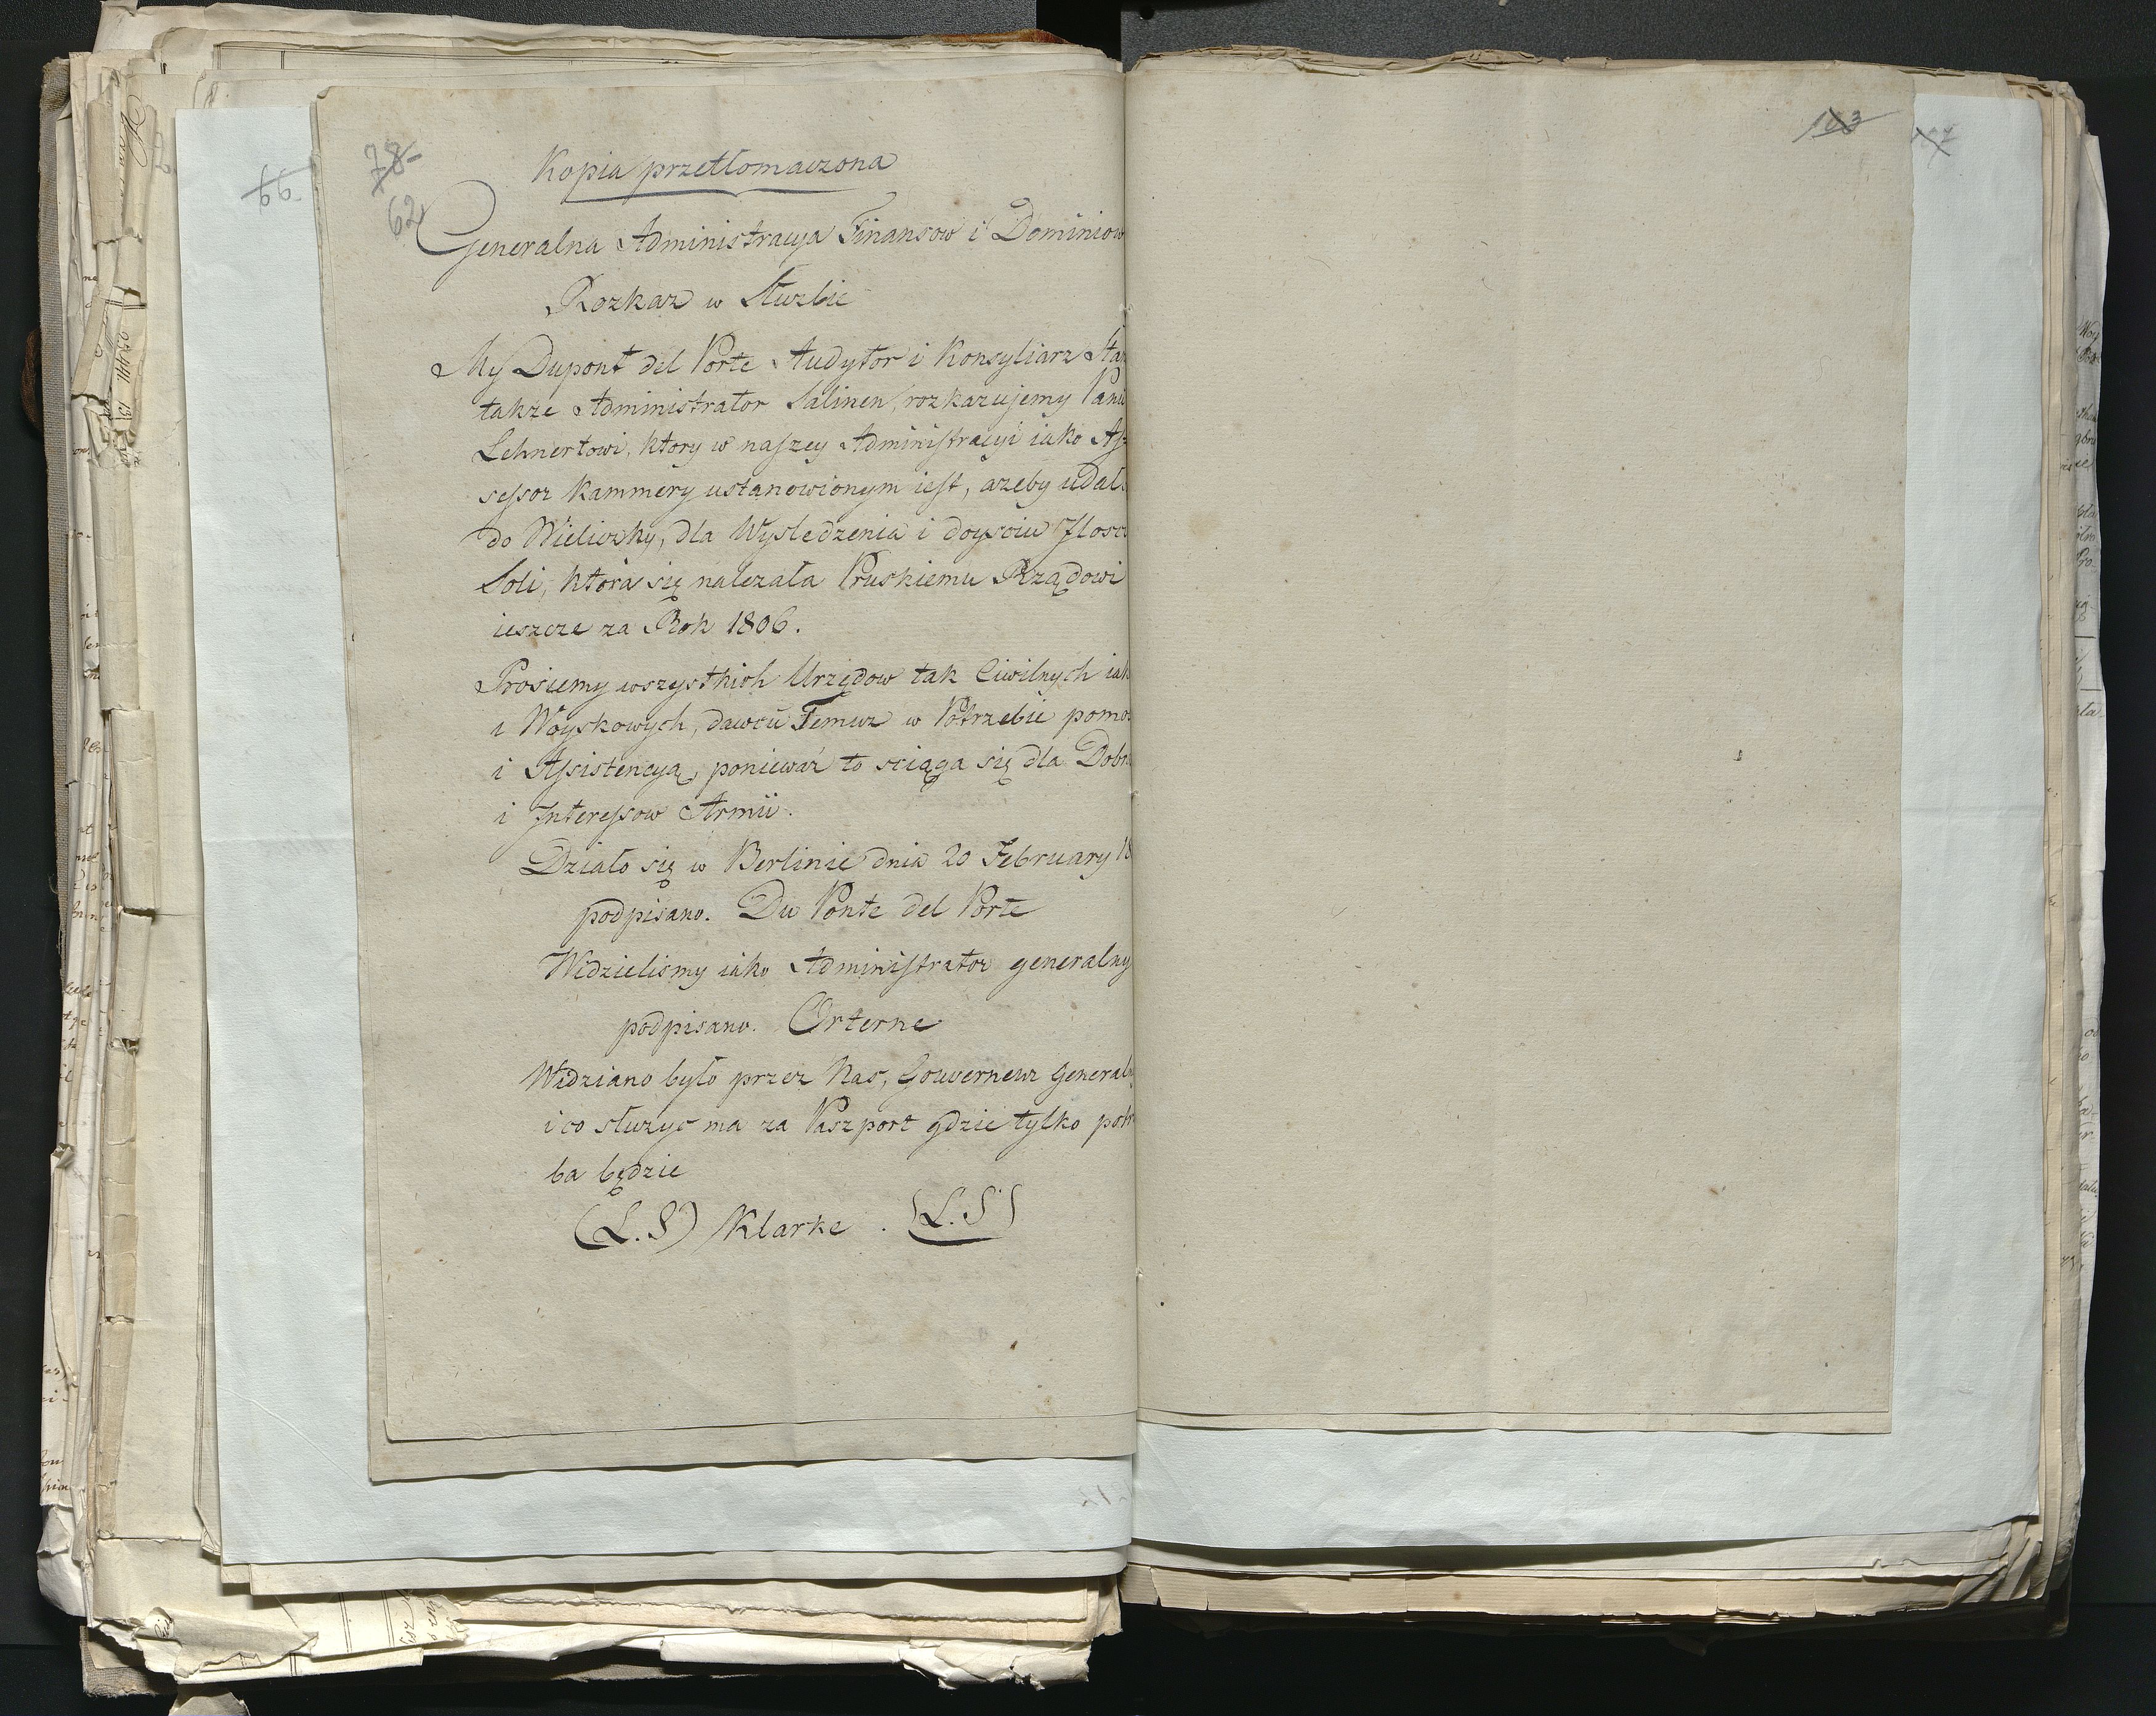 78
62
66
Kopia przetłomaczona
Generalna Administracya Finansow i Dominiow
Rozkaz w Służbie
My Dupont del Porte Audytor i Konsyliarz Sta
także Administrator Salinen, rozkazujemy Panu
Lehnertowi, ktory w naszey Administracyi iako As=
sessor Kammery ustanowionym iest, azeby udał
do Wieliczky, dla Wysledzenia i doyscia Ilosci
Soli, ktora się nalezała Pruskiemu Rządowi
ieszcze za Rok 1806.
Prosiemy wszystkich Urzędow tak Ciwilnych iak
i Woyskowych, dawcu Temuz w Potrzebie pomo
i Assistencyą, poniewaź to sciąga się dla Dobr
i Interessow Armii.
Działo się w Berlinie dnia 20 February 18
podpisano. Du Ponte del Porte
Widzielismy iako Administrator generalny
podpisano. Orterne
Widziano było przez Nas, Gouverneur General
i co służyć ma za Paszport gdzie tylko potr
ba będzie
(L.S) Klarke . (L.S)
103